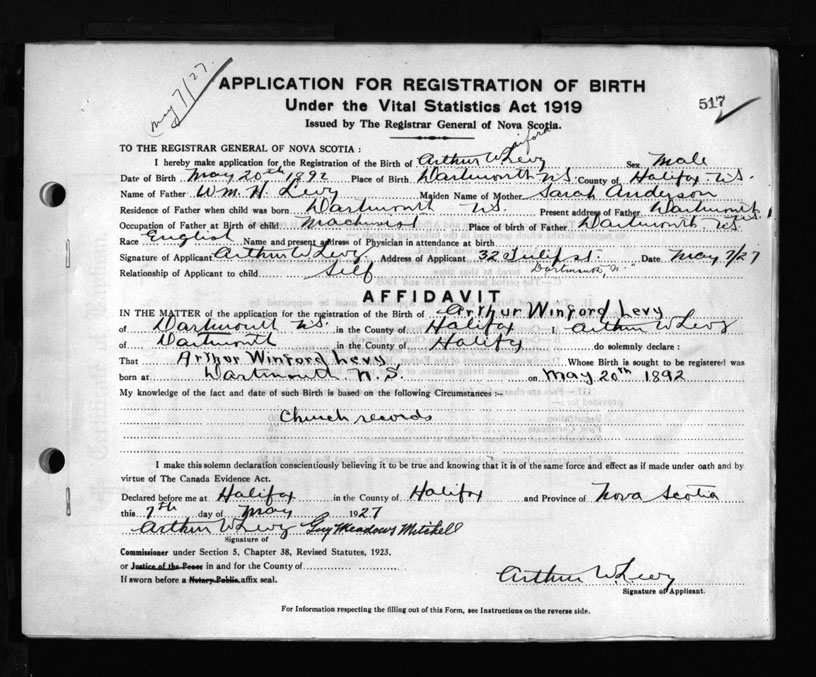 May 7/27.
APPLICATION FOR REGISTRATION OF BIRTH
517
Under the Vital Statistics Act 1919
Issued by The Registrar General of Nova Scotia.
TO THE REGISTRAR GENERAL OF NOVA SCOTIA :
inford
I hereby make application for the Registration of the Birth of Arthur W Levy Sex Male
Date of Birth May 20th 1892 Place of Birth Dartmouth N.S. County of Halifax N.S.
Name of Father Wm. H. Levy Maiden Name of Mother Sarah Anderson
Residence of Father when child was born Dartmouth N.S. Present address of Father Dartmouth N.S.
Occupation of Father at Birth of child Machinist Place of birth of Father Dartmouth N.S.
Race English Name and present address of Physician in attendance at birth
Signature of Applicant Arthur W Levy Address of Applicant 32 Tulip st. Date May 7/27
Relationship of Applicant to child Self Dartmouth, N.S.
AFFIDAVIT
IN THE MATTER of the application for the registration of the Birth of Arthur Winford Levy
of Dartmouth N.S. in the County of Halifax I, Arthur W Levy
of Dartmouth in the County of Halifax do solemnly declare :
That Arthur Winford Levy Whose Birth is sought to be registered was
born at Dartmouth. N.S. on May 20th 1892
My knowledge of the fact and date of such Birth is based on the following Circumstances :-
Church records
I make this solemn declaration conscientiously believing it to be true and knowing that it is of the same force and effect as if made under oath and by
virtue of The Canada Evidence Act.
Declared before me at Halifax in the County of Halifax and Province of Nova Scotia
this 7th day of May 1927
Arthur W Levy Guy Meadows Mitchell
Signature of
Commissioner under Section 5, Chapter 38, Revised Statutes, 1923.
or Justice of the Peace in and for the County of
If sworn before a Notary Public affix seal.
Arthur W Levy
Signature of Applicant.
For Information respecting the filling out of this Form, see Instructions on the reverse side.